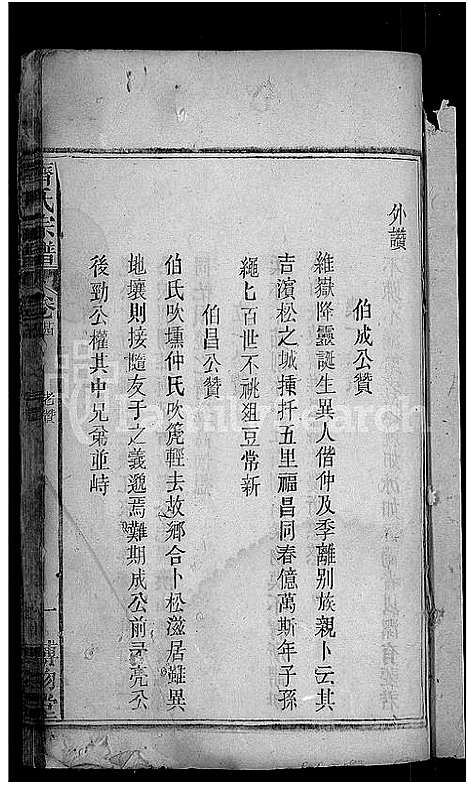 外讚
伯成公贊
維嶽降靈誕生異人偕仲及季離別族親卜云其
吉濱松之城揷扦五里福昌同春億萬斯年子孫
繩七百世不祧俎豆常新
伯昌公贊
伯氏吹壎仲氏吹篪輕去故鄉合卜松滋居雖異
地壤則接隨友于之義遞焉難期成公前 亮公
後勁公權其中兄弟並峙
氏宗譜 卷 老贊 一 堂
FamilySearch